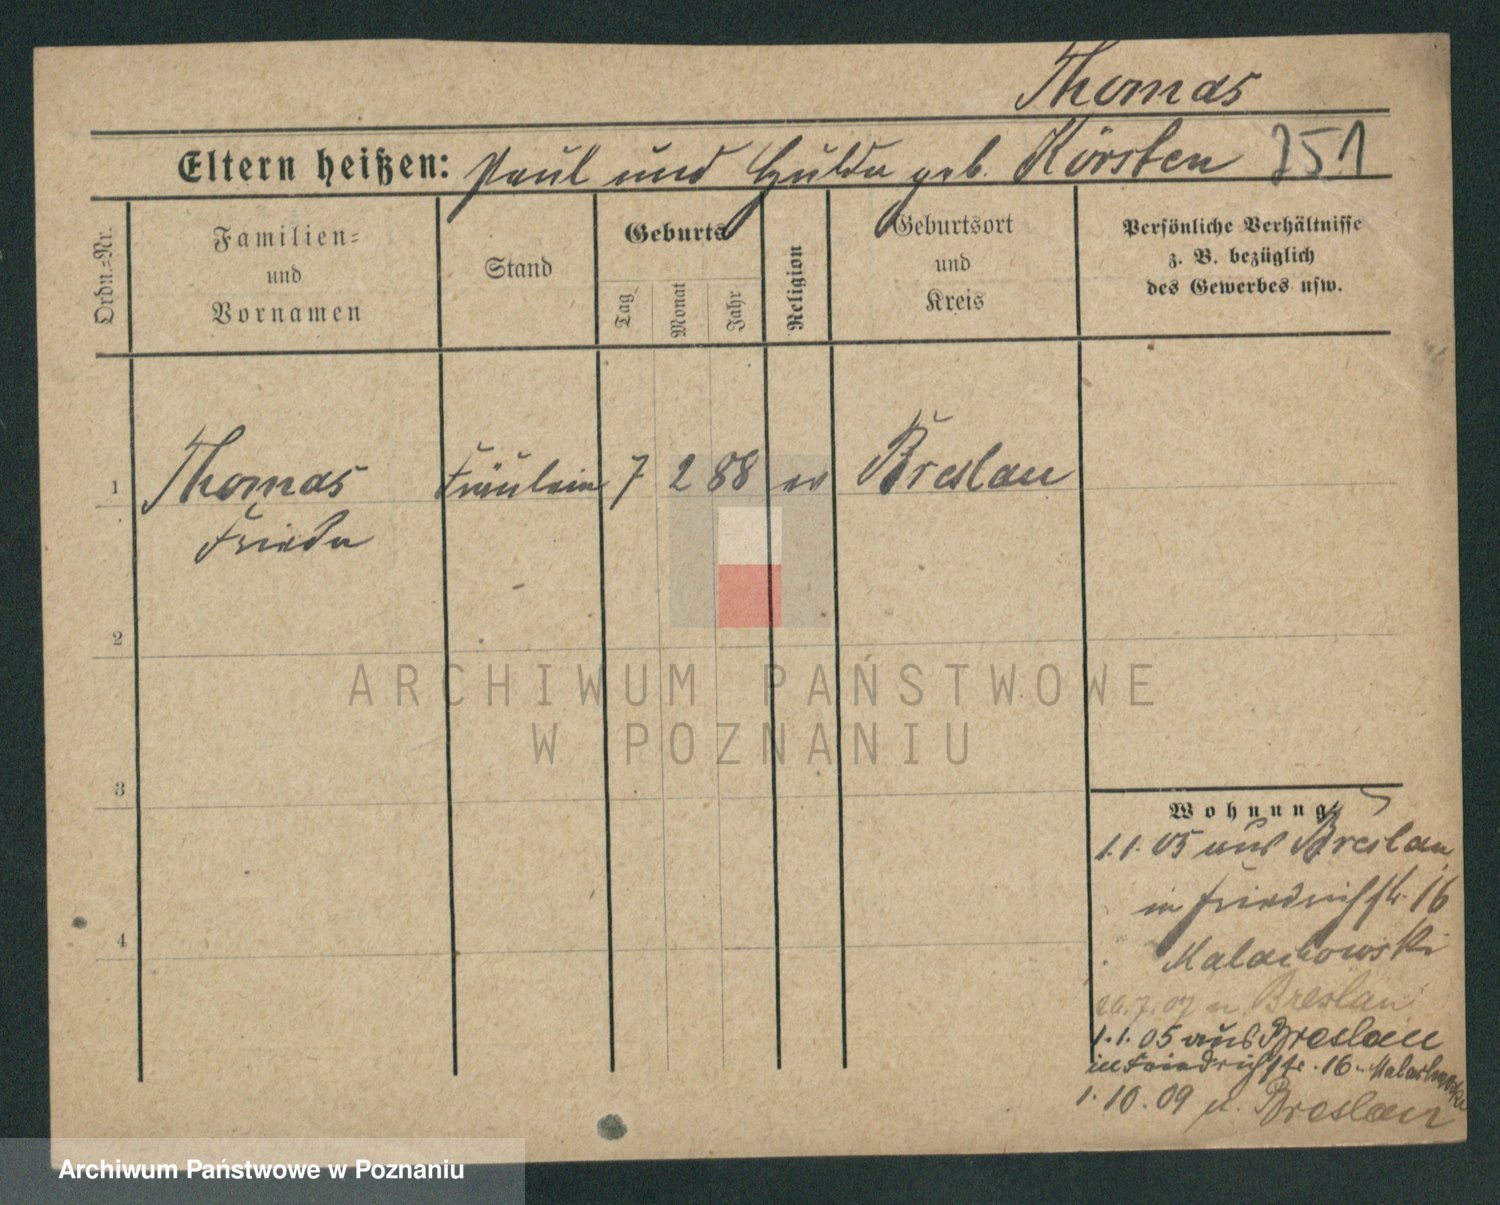 Thomas
Eltern heißen: Paul und Hulda geb. Körsten 751
Ordn.=Nr.
Familien=
und
Vornamen
Stand
Geburts
Tag
Monat
Jahr
Religion
Geburtsort
und
Kreis
Persönliche Verhältnisse
z. B. bezüglich
des Gewerbes usw.
1 Thomas Fräulein 7 2 88 ev Breslau
Frieda
2
3
4
ARCHIWUM PAŃSTWOWE
W POZNANIU
Wohnung
1.1.05 aus Breslau
in Friedrichstr. 16
Malachowski
7.07 n Breslau
1.1.05 aus Breslau
in Friedrichstr. 16 Malachowski
1.10.09 n. Breslau
Archiwum Państwowe w Poznaniu